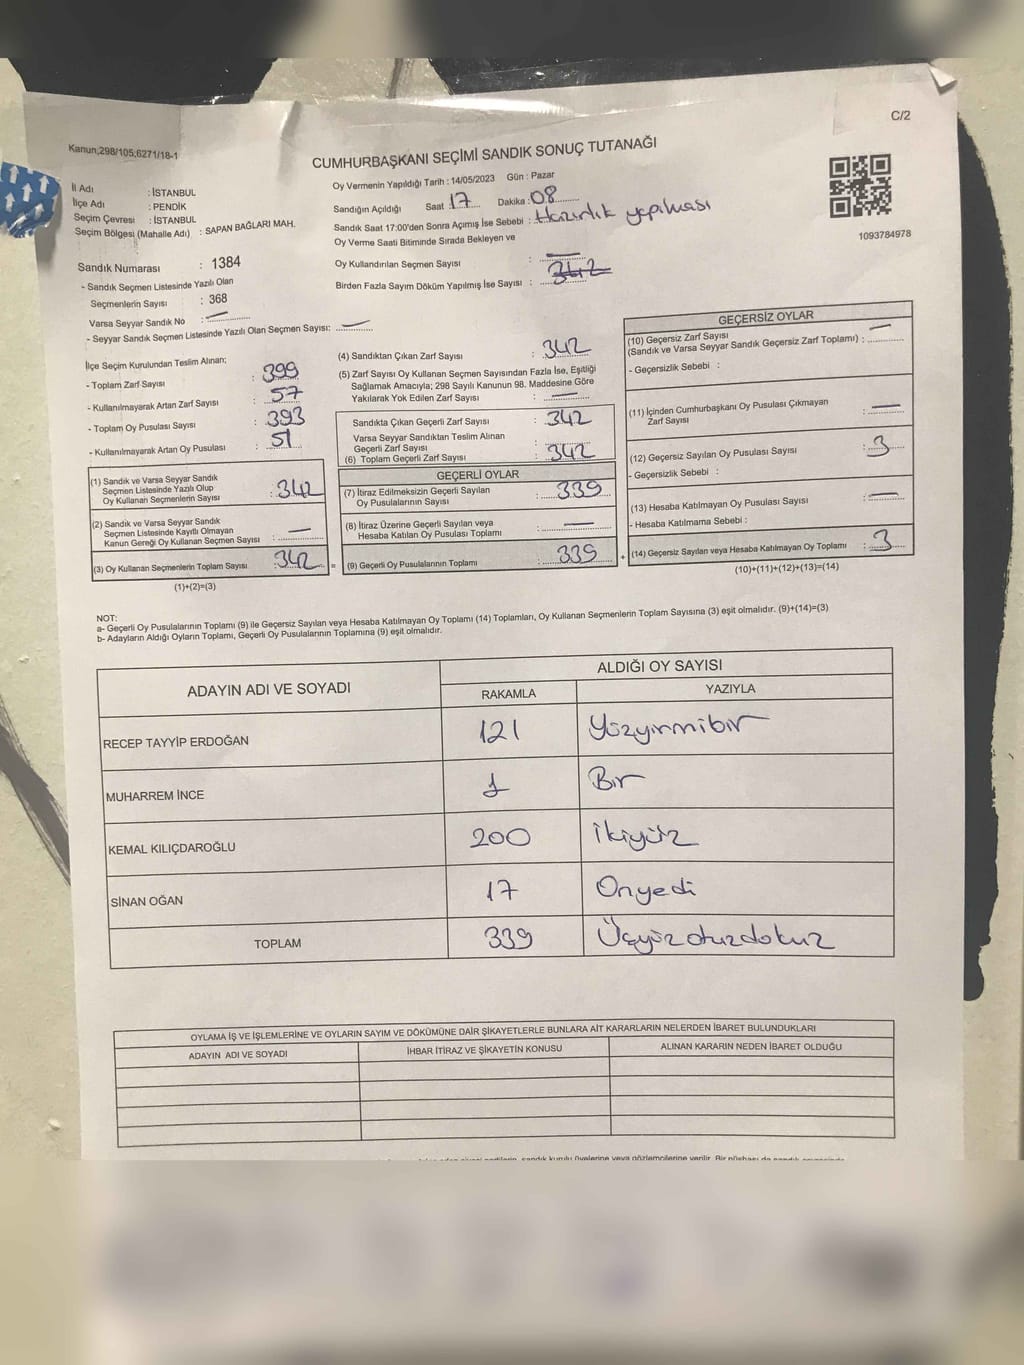 C/2
Kanun;298/105;6271/18-1
CUMHURBAŞKANI SEÇİMİ SANDIK SONUÇ TUTANAĞI
İl Adı : İSTANBUL
İlçe Adı : PENDİK
Seçim Çevresi : İSTANBUL
Seçim Bölgesi (Mahalle Adı) : SAPAN BAĞLARI MAH.
Oy Vermenin Yapıldığı Tarih : 14/05/2023 Gün : Pazar
Sandığın Açıldığı Saat 17 Dakika : 08
Sandık Saat 17:00'den Sonra Açımış İse Sebebi : Hazırlık yapılması
Oy Verme Saati Bitiminde Sırada Bekleyen ve
Oy Kullandırılan Seçmen Sayısı : —
Birden Fazla Sayım Döküm Yapılmış İse Sayısı :
1093784978
Sandık Numarası : 1384
- Sandık Seçmen Listesinde Yazılı Olan
Seçmenlerin Sayısı : 368
Varsa Seyyar Sandık No : —
- Seyyar Sandık Seçmen Listesinde Yazılı Olan Seçmen Sayısı: —
İlçe Seçim Kurulundan Teslim Alınan;
- Toplam Zarf Sayısı : 399
- Kullanılmayarak Artan Zarf Sayısı : 57
- Toplam Oy Pusulası Sayısı : 393
- Kullanılmayarak Artan Oy Pusulası : 51
(1) Sandık ve Varsa Seyyar Sandık
Seçmen Listesinde Yazılı Olup
Oy Kullanan Seçmenlerin Sayısı : 342
(2) Sandık ve Varsa Seyyar Sandık
Seçmen Listesinde Kayıtlı Olmayan
Kanun Gereği Oy Kullanan Seçmen Sayısı : —
(3) Oy Kullanan Seçmenlerin Toplam Sayısı : 342 =
(1)+(2)=(3)
(4) Sandıktan Çıkan Zarf Sayısı : 342
(5) Zarf Sayısı Oy Kullanan Seçmen Sayısından Fazla İse, Eşitliği
Sağlamak Amacıyla; 298 Sayılı Kanunun 98. Maddesine Göre
Yakılarak Yok Edilen Zarf Sayısı : —
Sandıkta Çıkan Geçerli Zarf Sayısı : 342
Varsa Seyyar Sandıktan Teslim Alınan
Geçerli Zarf Sayısı :
(6) Toplam Geçerli Zarf Sayısı : 342
GEÇERLİ OYLAR
(7) İtiraz Edilmeksizin Geçerli Sayılan
Oy Pusulalarının Sayısı : 339
(8) İtiraz Üzerine Geçerli Sayılan veya
Hesaba Katılan Oy Pusulası Toplamı : —
(9) Geçerli Oy Pusulalarının Toplamı : 339 +
GEÇERSİZ OYLAR
(10) Geçersiz Zarf Sayısı
(Sandık ve Varsa Seyyar Sandık Geçersiz Zarf Toplamı) : —
- Geçersizlik Sebebi :
(11) İçinden Cumhurbaşkanı Oy Pusulası Çıkmayan
Zarf Sayısı : —
(12) Geçersiz Sayılan Oy Pusulası Sayısı : 3
- Geçersizlik Sebebi :
(13) Hesaba Katılmayan Oy Pusulası Sayısı : —
- Hesaba Katılmama Sebebi :
(14) Geçersiz Sayılan veya Hesaba Katılmayan Oy Toplamı : 3
(10)+(11)+(12)+(13)=(14)
NOT:
a- Geçerli Oy Pusulalarının Toplamı (9) ile Geçersiz Sayılan veya Hesaba Katılmayan Oy Toplamı (14) Toplamları, Oy Kullanan Seçmenlerin Toplam Sayısına (3) eşit olmalıdır. (9)+(14)=(3)
b- Adayların Aldığı Oyların Toplamı, Geçerli Oy Pusulalarının Toplamına (9) eşit olmalıdır.
ADAYIN ADI VE SOYADI ALDIĞI OY SAYISI
RAKAMLA YAZIYLA
RECEP TAYYİP ERDOĞAN 121 Yüzyirmibir
MUHARREM İNCE 1 Bir
KEMAL KILIÇDAROĞLU 200 İkiyüz
SİNAN OĞAN 17 Onyedi
TOPLAM 339 Üçyüzotuzdokuz
OYLAMA İŞ VE İŞLEMLERİNE VE OYLARIN SAYIM VE DÖKÜMÜNE DAİR ŞİKAYETLERLE BUNLARA AİT KARARLARIN NELERDEN İBARET BULUNDUKLARI
ADAYIN ADI VE SOYADI İHBAR İTİRAZ VE ŞİKAYETİN KONUSU ALINAN KARARIN NEDEN İBARET OLDUĞU